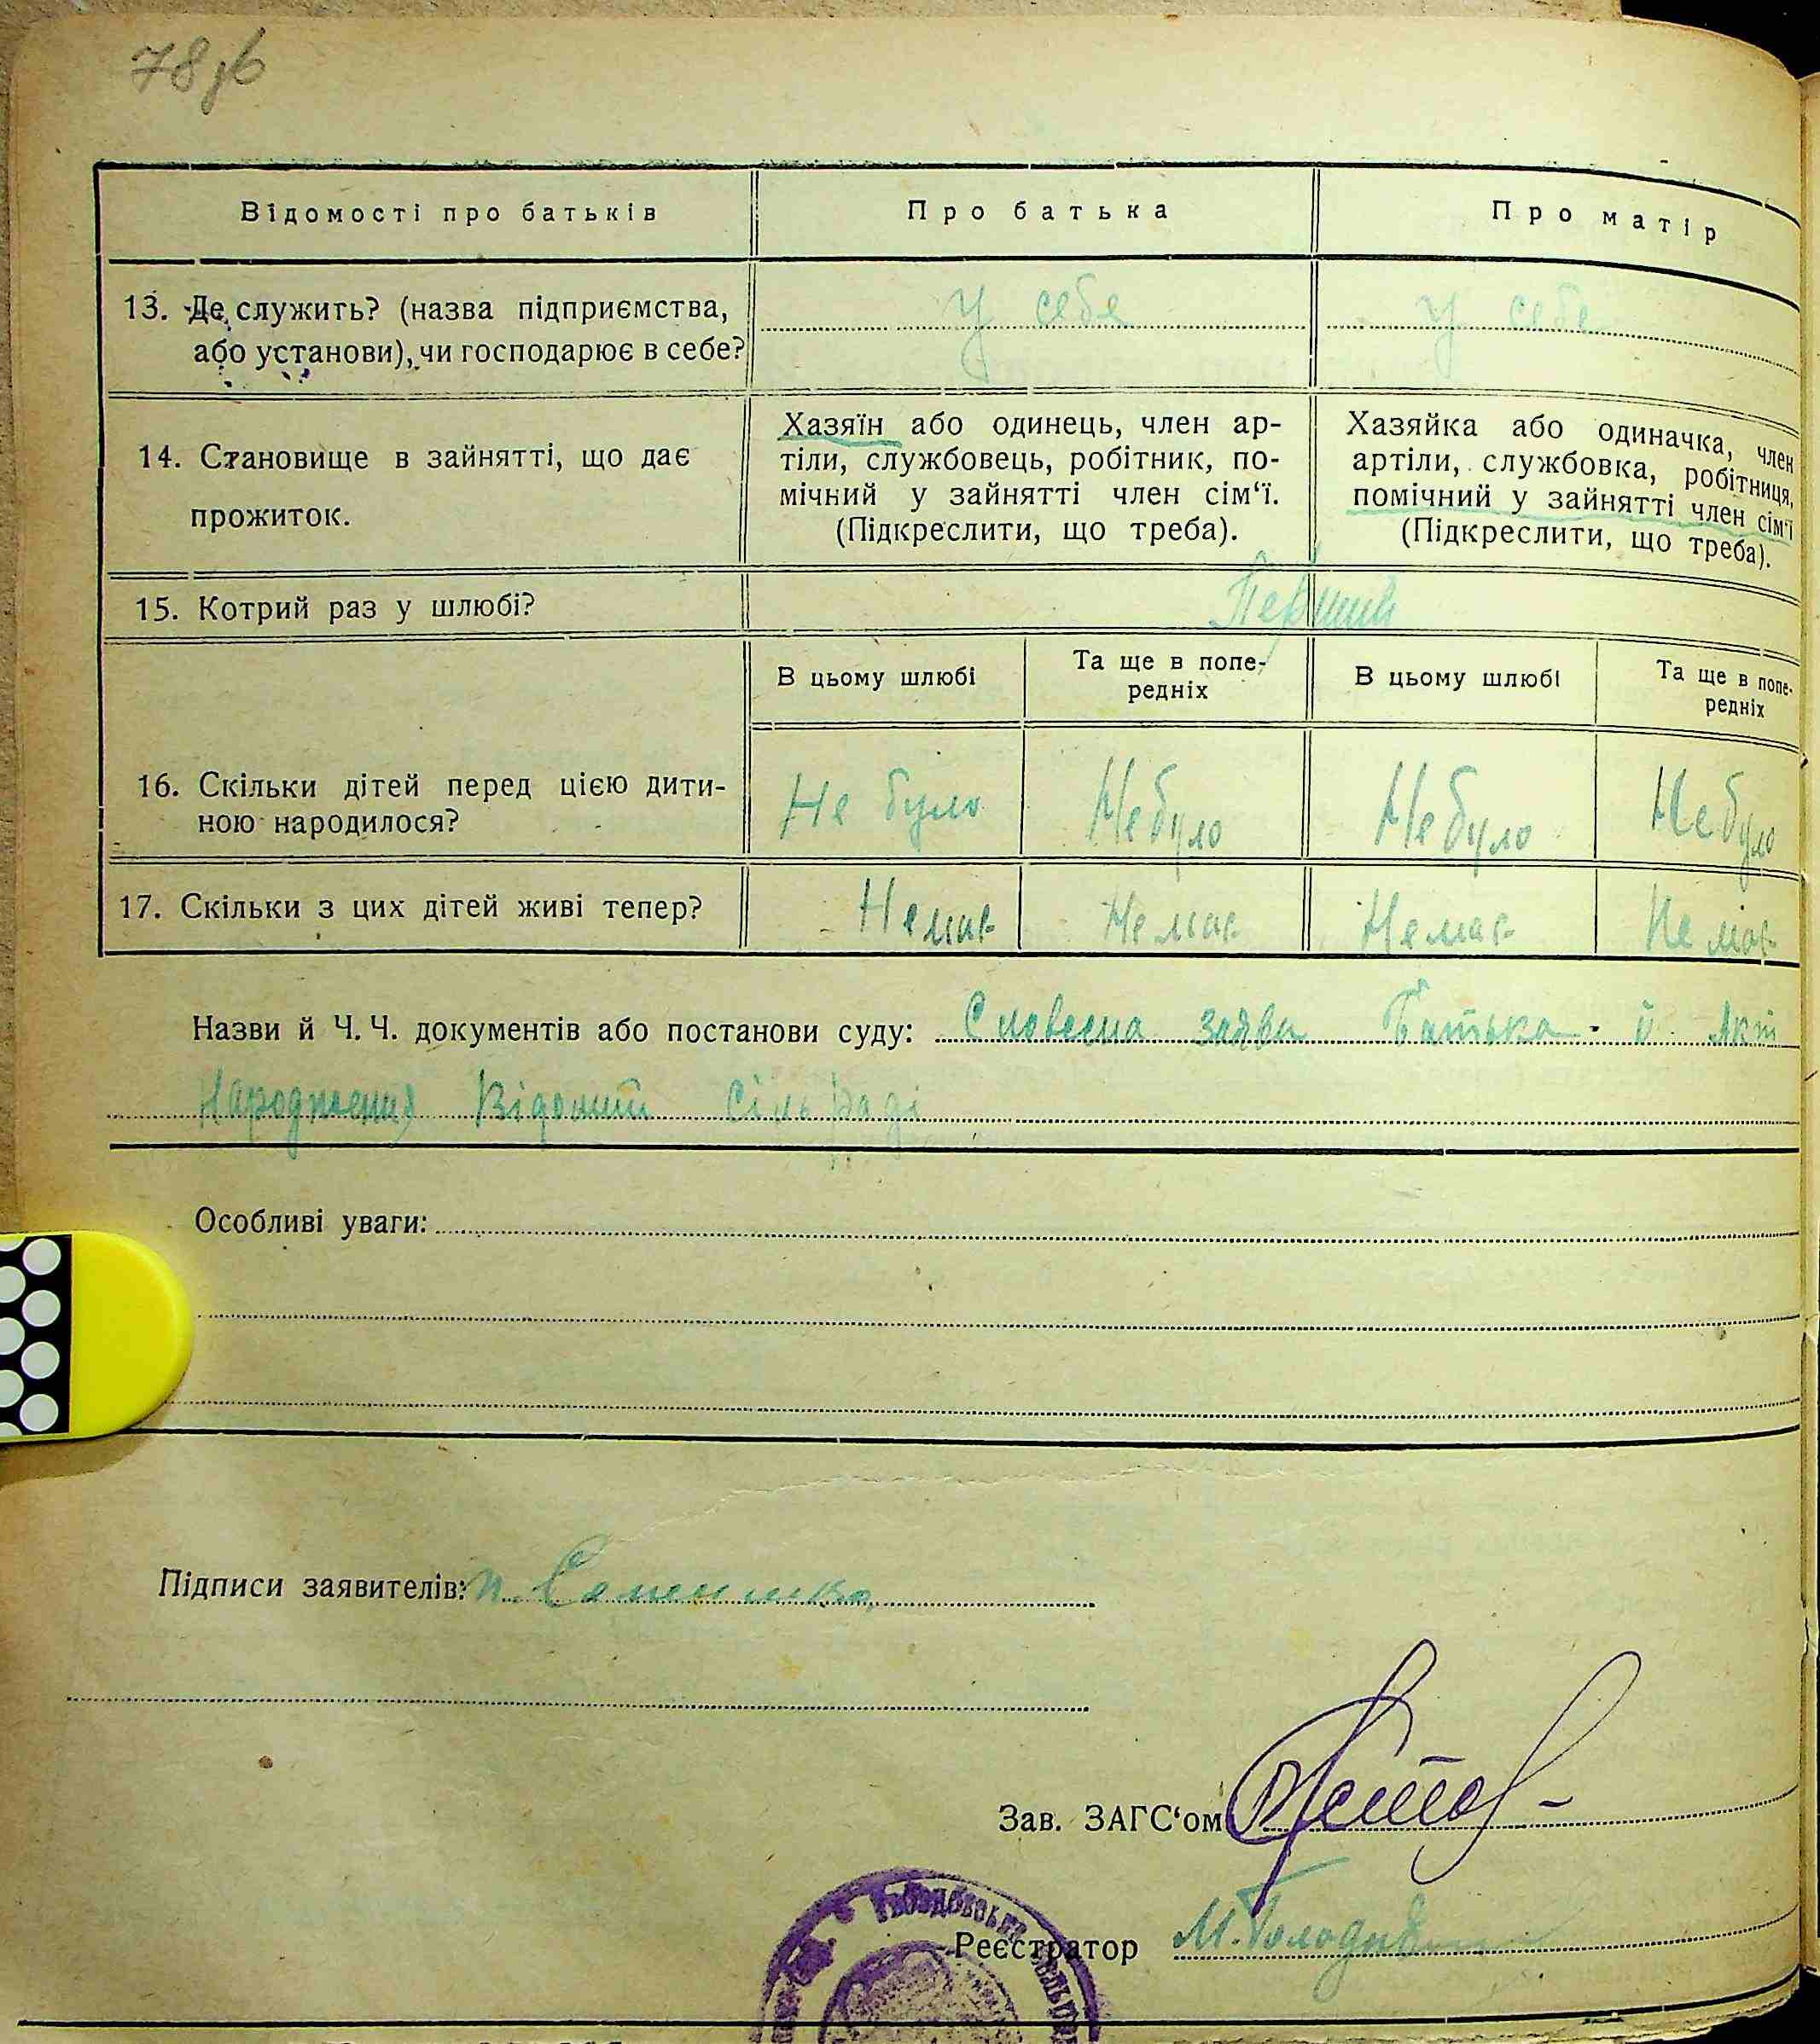 78зв
Відомості про батьків
Про батька
Про матір
13. Де служить? (назва підприємства,
або установи), чи господарює в себе?
У себе
У себе
14. Становище в зайнятті, що дає
прожиток.
Хазяїн або одинець, член ар-
тіли, службовець, робітник, по-
мічний у зайнятті член сім‘ї.
(Підкреслити, що треба).
Хазяйка або одиначка, член
артіли, службовка, робітниця,
помічний у зайнятті член сім‘ї
(Підкреслити, що треба).
15. Котрий раз у шлюбі?
Перший
В цьому шлюбі
Та ще в попе-
редніх
В цьому шлюбі
Та ще в попе-
редніх
16. Скільки дітей перед цією дити-
ною народилося?
Не було
Небуло
Небуло
Небуло
17. Скільки з цих дітей живі тепер?
Немає
Немає
Немає
Немає
Назви й Ч. Ч. документів або постанови суду: Словесна заява Батька й Акт
Народження Відомий Сіль Раді
Особливі уваги:
Підписи заявителів:
Зав. ЗАГС‘ом
Реєстратор М.